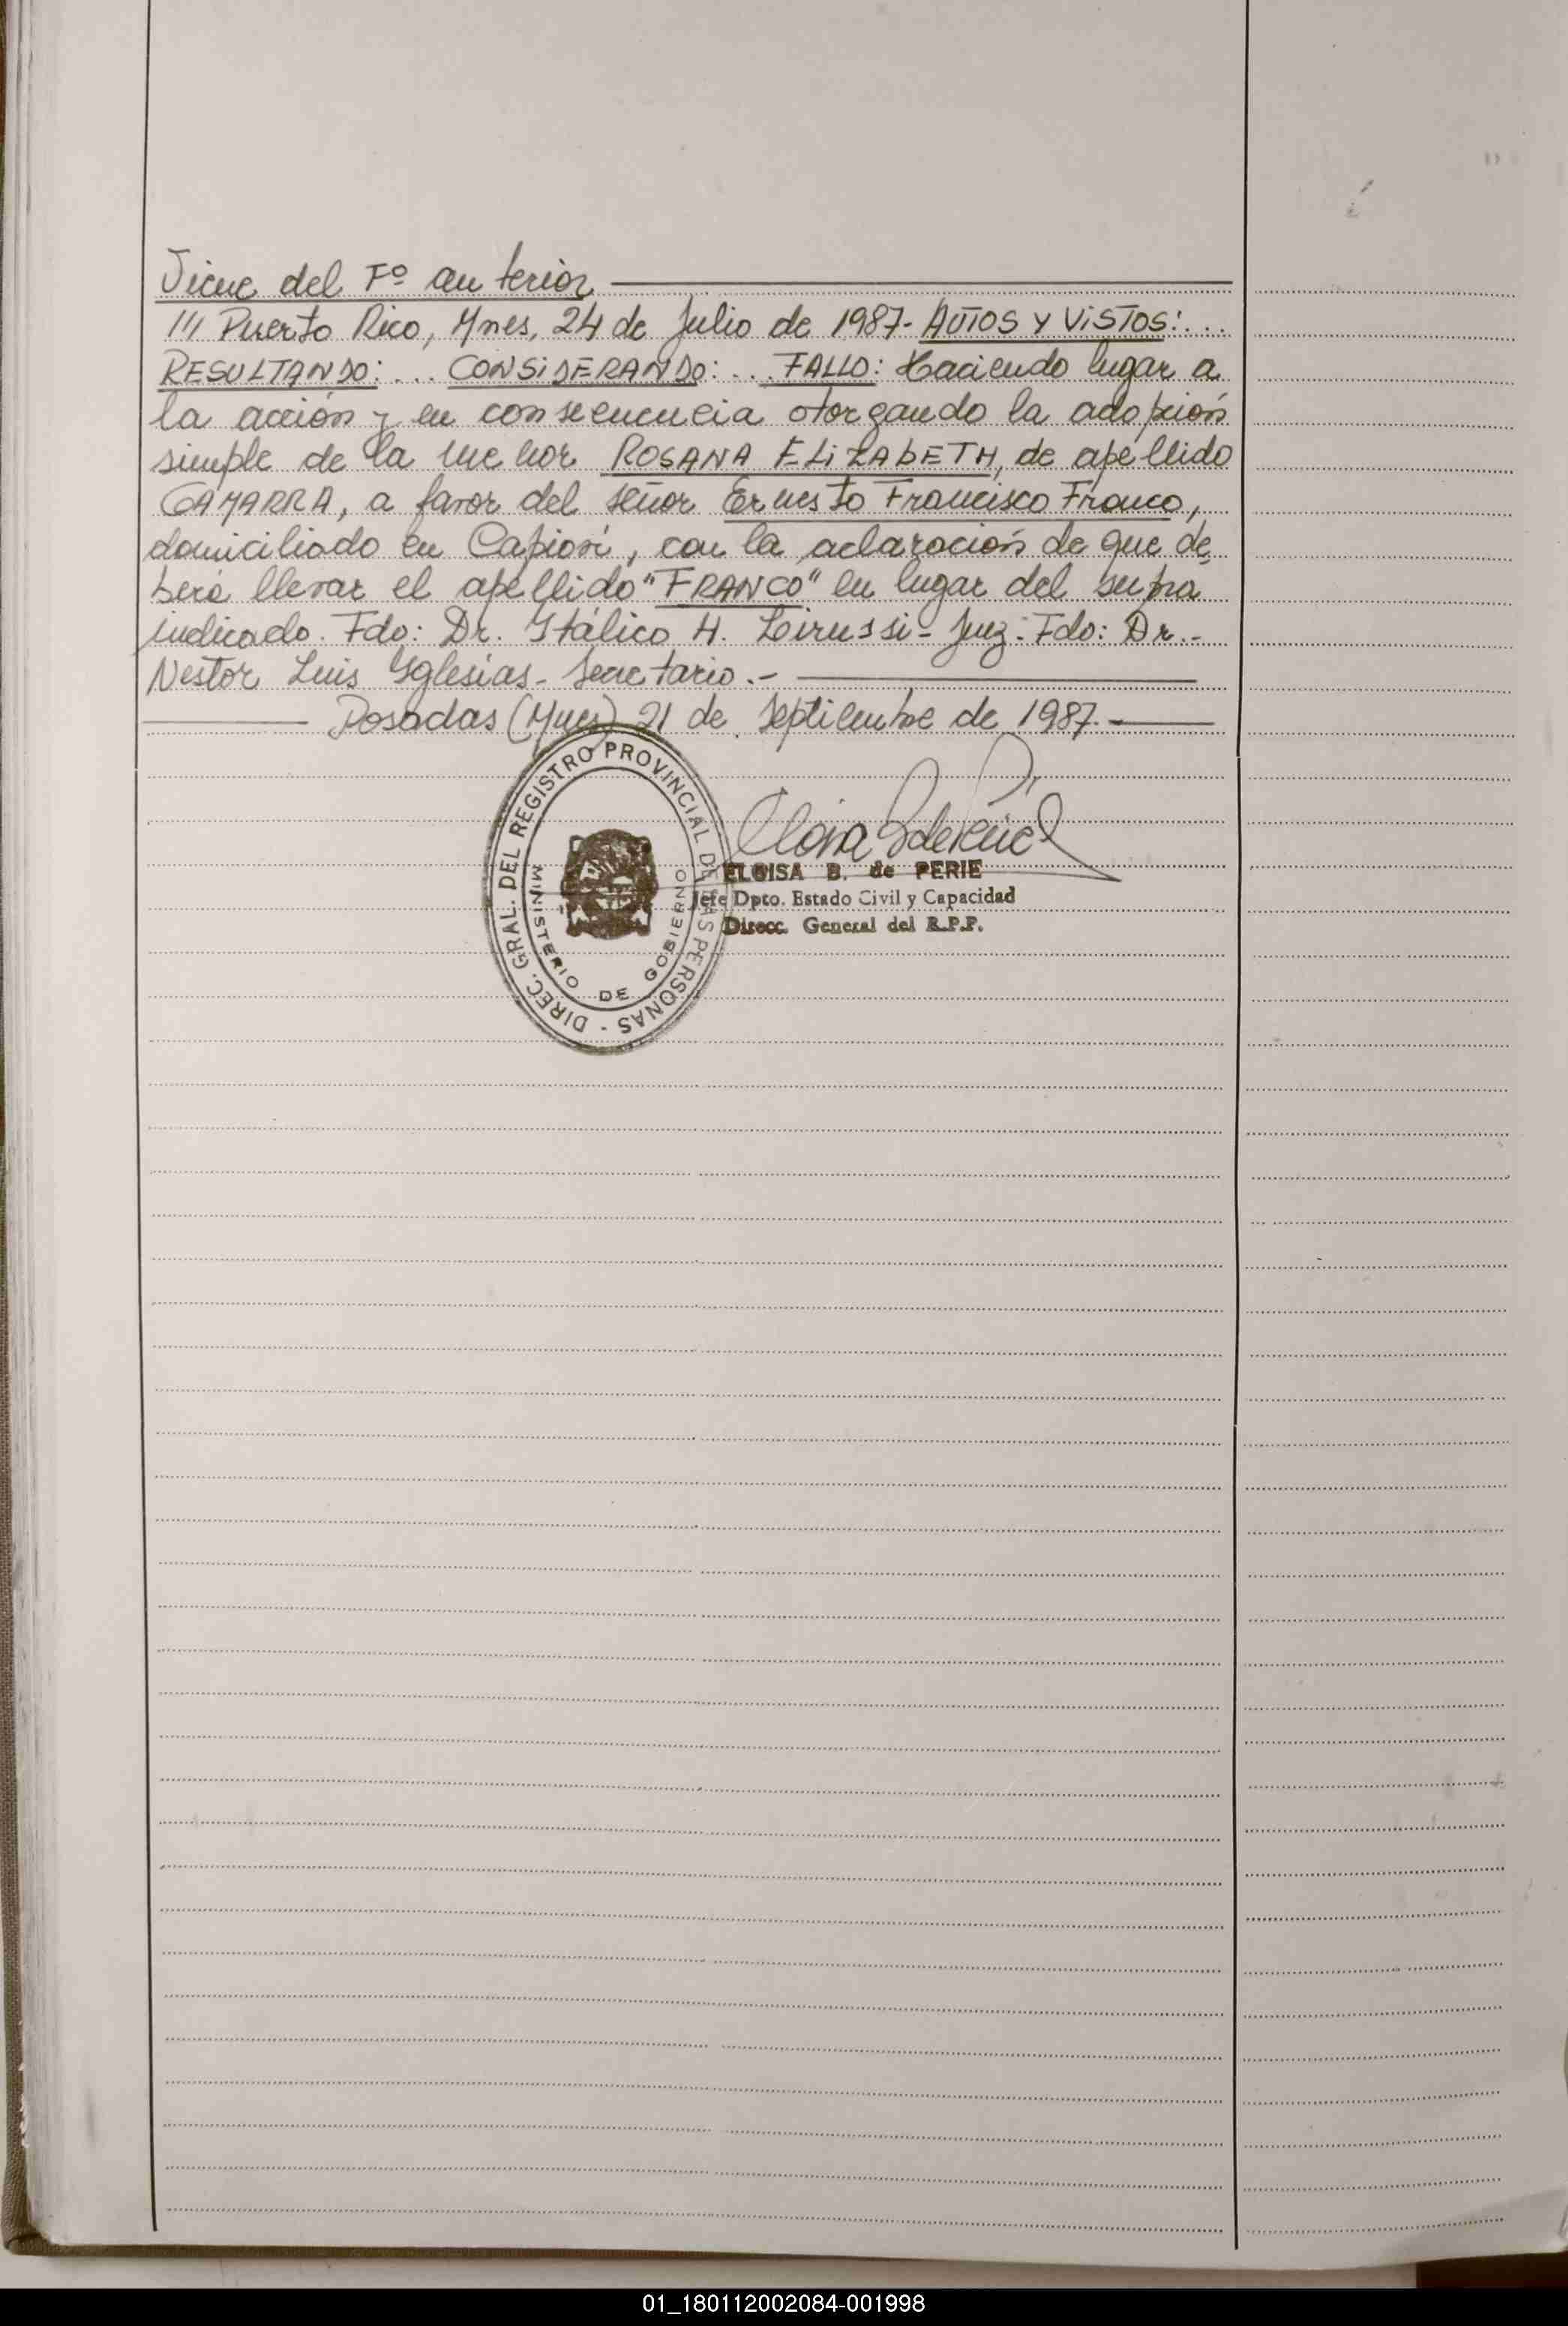 Viene del Fº anterior
/// Puerto Rico, Mnes, 24 de Julio de 1987- AUTOS Y VISTOS:...
RESULTANDO:... CONSIDERANDO:... FALLO: Haciendo lugar a
la acción y en consecuencia otorgando la adopción
simple de la menor ROSANA ELIZABETH, de apellido
GAMARRA, a favor del señor Ernesto Francisco Franco,
domiciliado en Capioví, con la aclaración de que de
berá llevar el apellido "FRANCO" en lugar del supra
indicado. Fdo: Dr. Itálico H. - Juez - Fdo: Dr.-
Nestor Luis Yglesias - Secretario.-
Posadas (Mnes) 21 de Septiembre de 1987.-
DIREC. GRAL. DEL REGISTRO PROVINCIAL DE LAS PERSONAS -
MINISTERIO DE GOBIERNO
ELOISA B. de PERIE
Jefe Dpto. Estado Civil y Capacidad
Direcc. General del R.P.P.
01_180112002084-001998